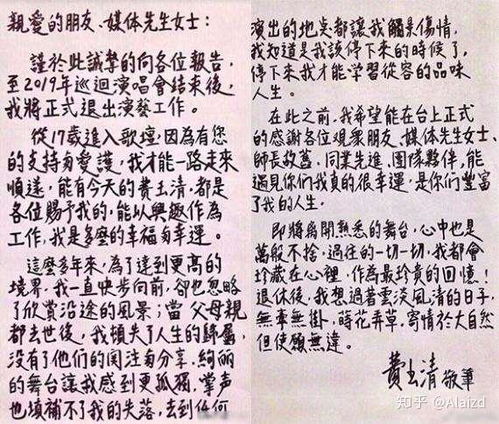 親愛的朋友、媒体先生女士：
謹於此誠摯的向各位報告，
至2019年巡迴演唱會結束後，
我將正式退出演藝工作。
從17歲進入歌壇，因為有您
的支持与愛護，我才能一路走來
順遂，能有今天的費玉清，都是
各位賜予我的，能以興趣作為
工作，我是多麼的幸福与幸運。
這麼多年來，為了達到更高的
境界，我一直快步向前，卻也忽略
了欣賞沿途的風景；當父母親
都去世後，我頓失了人生的歸屬，
沒有了他們的関注与分享，絢麗
的舞台讓我感到更孤獨，掌声
也填補不了我的失落，去到任何
演出的地点都讓我觸景傷情，
我知道是我該停下來的時候了，
停下來，我才能学習從容的品味
人生。
在此之前，我希望能在台上正式
的感謝各位観衆朋友、媒体先生女士、
師長故舊，同業先進，団隊夥伴，能
遇見你們我真的很幸運，是你們豐富
了我的人生。
即將離開熟悉的舞台，心中也是
萬般不捨，過往的一切一切，我都會
珍藏在心裡，作為最珍貴的回憶！
退休後，我想過著雲淡風清的日子，
無事無掛，蒔花弄草，寄情於大自然
但使願無違。
費玉清 敬筆
知乎 @Alaizd